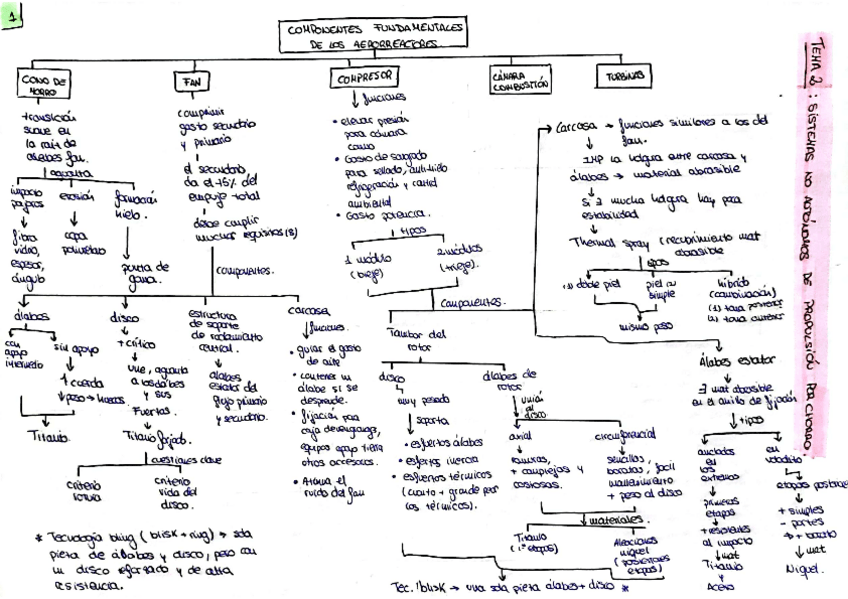 1
COMPONENTES FUNDAMENTALES
DE LOS AERORREACTORES
TEMA 2: SISTEMAS NO AUTÓNOMOS DE PROPULSIÓN POR CHORRO.
CONO DE
MORRO
FAN
COMPRESOR
CÁMARA
COMBUSTIÓN
TURBINAS
transición
suave en
la raiz de
álabes fan.
aguanta
impacto
pájaros
erosión
formación
hielo.
fibra
vidrio,
espesor,
ángulo
capa
poliuretano
punta de
goma.
comprimir
gasto secundario
y primario
el secundario
da el 75% del
empuje total
debe cumplir
muchos requisitos (8)
componentes.
álabes
con
apoyo
intermedio
sin apoyo
↑ cuerda
↓ peso → huecos.
Titanio.
disco
+ crítico
une, aguanta
a los álabes
y sus
Fuertas.
Titanio forjado.
cuestiones clave
criterio
rotura
criterio
vida del
disco.
estructura
de soporte
de rodamiento
central.
álabes
estator del
flujo primario
y secundario.
carcasa
funciones.
• guiar el gasto
de aire
• contener un
álabe si se
desprende.
• fijación para
caja de engranajes,
equipos apoyo tierra
otros accesorios.
• Atenua el
ruido del fan
funciones
• elevar presión
para cámara
comb
• Gasto de sangrado
para sellado, anti-hielo
refrigeración y control
ambiental
• Gasto potencia.
tipos
1 módulo
(bieje)
2 módulos
(trieje).
Componentes.
Tambor del
rotor
disco
muy pesado
soporta
• esfuertos álabes
• esfertos inercia
• esfuertos térmicos
(cuanto + grande peor
los térmicos).
álabes de
rotor
unión
al
disco.
axial
ranuras,
+ complejas y
costosas.
circunferencial
sencillas,
baratas, facil
mantenimiento
+ peso al disco
materiales.
Titanio
(1ª etapas)
Aleaciones
niquel
(posteriores
etapas)
Tec. blisk → una sola pieta álabes + disco *
Carcasa → funciones similares a las del
fan.
IMP la holgura entre carcasa y
álabes → material abrasible
Si ∃ mucha holgura hay poca
estabilidad
Thermal spray (recubrimiento mat
abrasible
tipos
(1) doble piel
piel
simple
híbrido
(combinación)
mismo peso
Álabes estator
∃ mat abrasible
en el anillo de fijación
tipos
anclados
en
los
extremos
primeras
etapas
+ resistentes
al impacto
mat
Titanio
y
Acero
en
voladito
etapas posteriores
+ simples
- partes
→ + barato
mat
Niquel.
* Tecnología bling (blisk + ring) → sola
pieta de álabes y disco, pero con
un disco reforzado y de alta
resistencia.